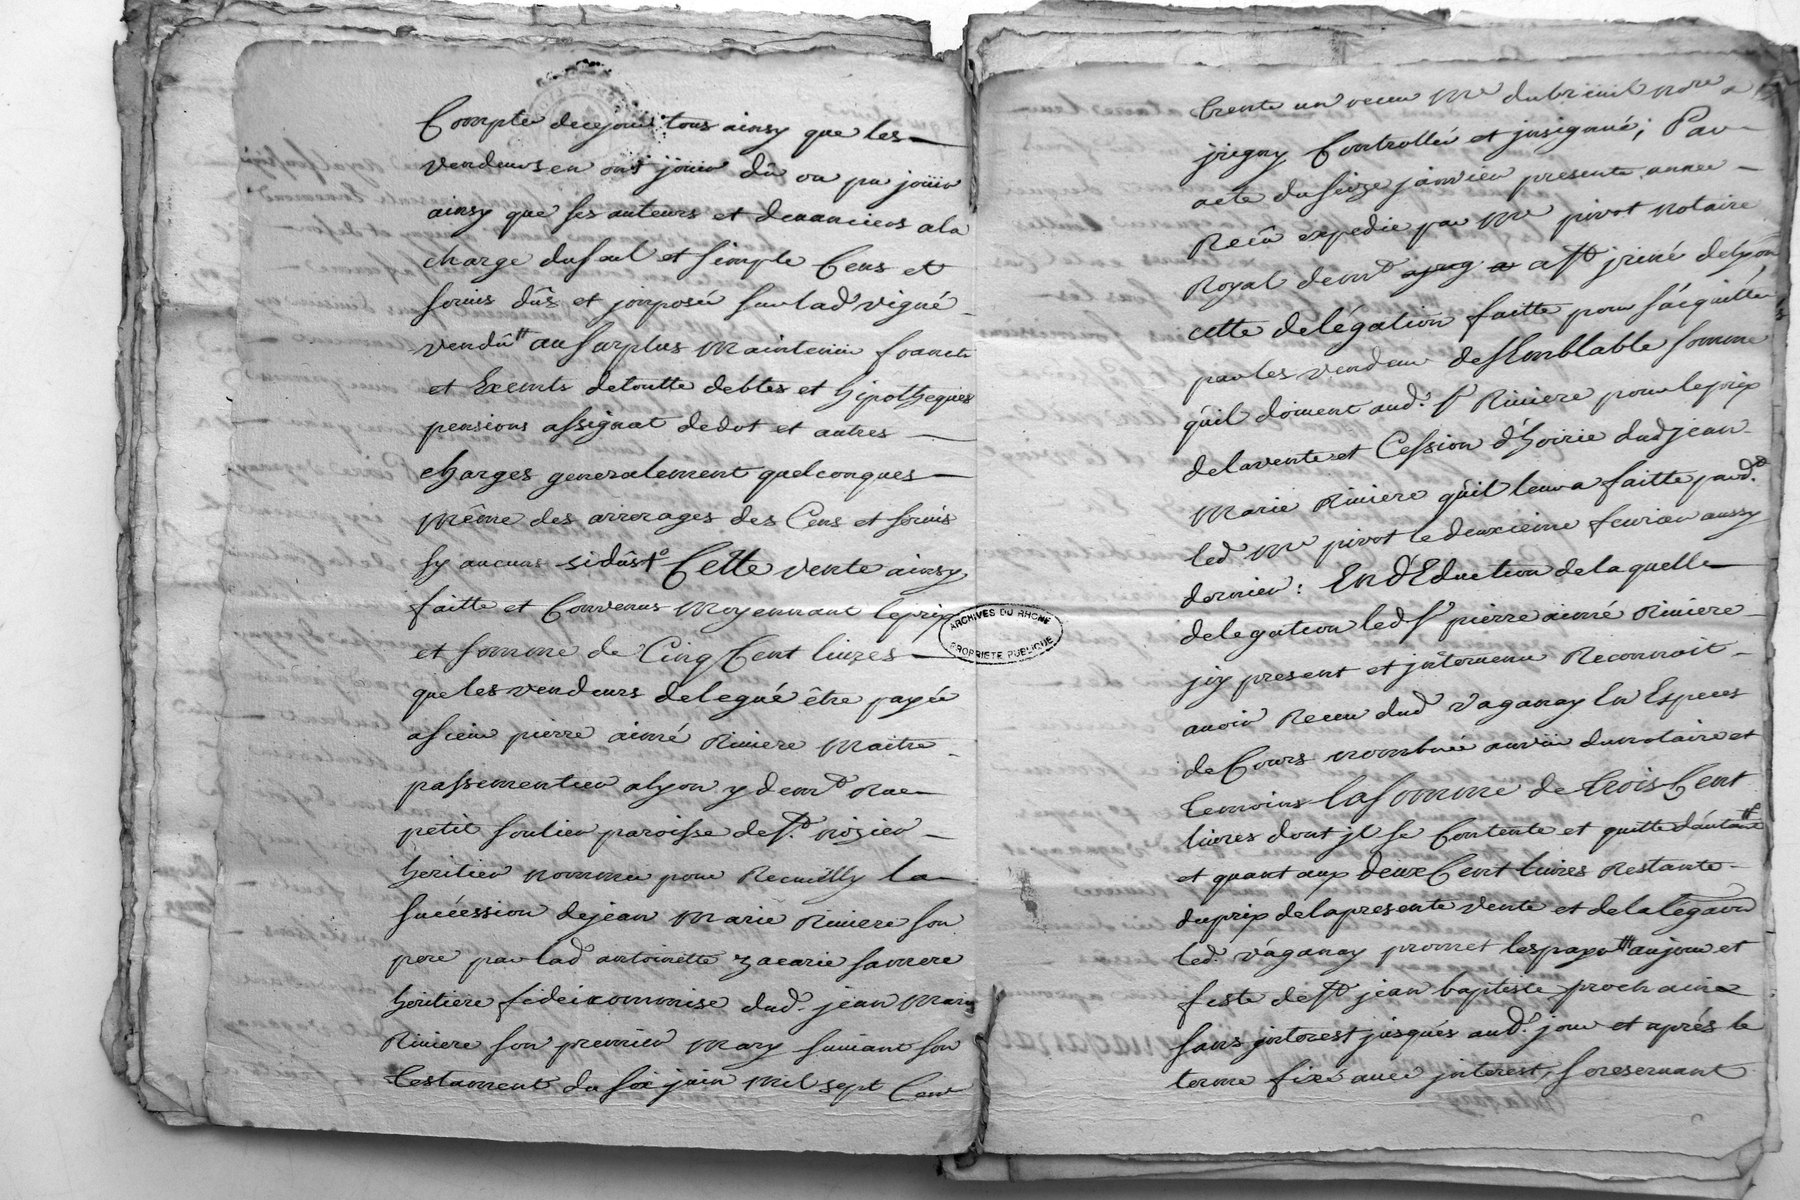 Compter decejour tous ainsy que les
vendeurs en ont jouïr dû ou pu joüir
ainsy que ses auteurs et devanciers ala
charge du seul et simple Cens et
servis dûs et jmposés sur lad.e vigne
vendûe au surplus maintenir franche
et Exempts detoutte debtes et hipotheques
pensions assignat dedot et autres
charges generalement quelconques
même des arrerages des Cens et servis
sy aucuns si dûst Cette vente ainsy
faitte et Convenus moyennant leprix
et somme de Cinq Cent livres
que les vendeurs delegué être payée
asieur pierre aimé Riviere maitre
passementier alyon y dem.t Rue
petit soulier paroisse deS.t nizier
heritier nommé pour Recuillir la
succession dejean marie Riviere son
pere par lad.e antoinette zacarie samere
heritiere fideicommise dud. jean Marie
Riviere son premier mary suivant son
testament du six juin mil sept Cent
trente un receu Me dubreuil no.re a
jrigny Controllé et jnsignué; Par
acte du seize janvier presente année
Recû expedié par Me pivot notaire
Royal dem.t a S.t jriné delyon
cette delégation faitte pour s'acquitter
par les vendeur desEmblable somme
qu'il doivent aud. S.r Riviere pour leprix
delavente et Cession d'hoirie dud jean
Marie Riviere qu'il leur a faitte pard.t
led. Me pivot le deuxieme fevrier aussy
dernier: En dEduction delaquelle
delegation led S.r pierre aimé Riviere
jcy present et jntervenu Reconnoit
avoir Receu dud Vaganay En Especes
de Cours nombrée auvüe dunotaire et
temoins la somme de trois Cent
livres dont jl se Contente et quitte d'autant
et quant aux deux Cent livres Restante
duprix delapresente vente et delalégaon
led. Vaganay promet les payer aujour et
feste deS.t jean baptiste prochaine
sans jnterest jusqués aud. jour et aprés le
terme fixé avec jnterest, s oreservant
ARCHIVES DU RHONE
PROPRIETE PUBLIQUE